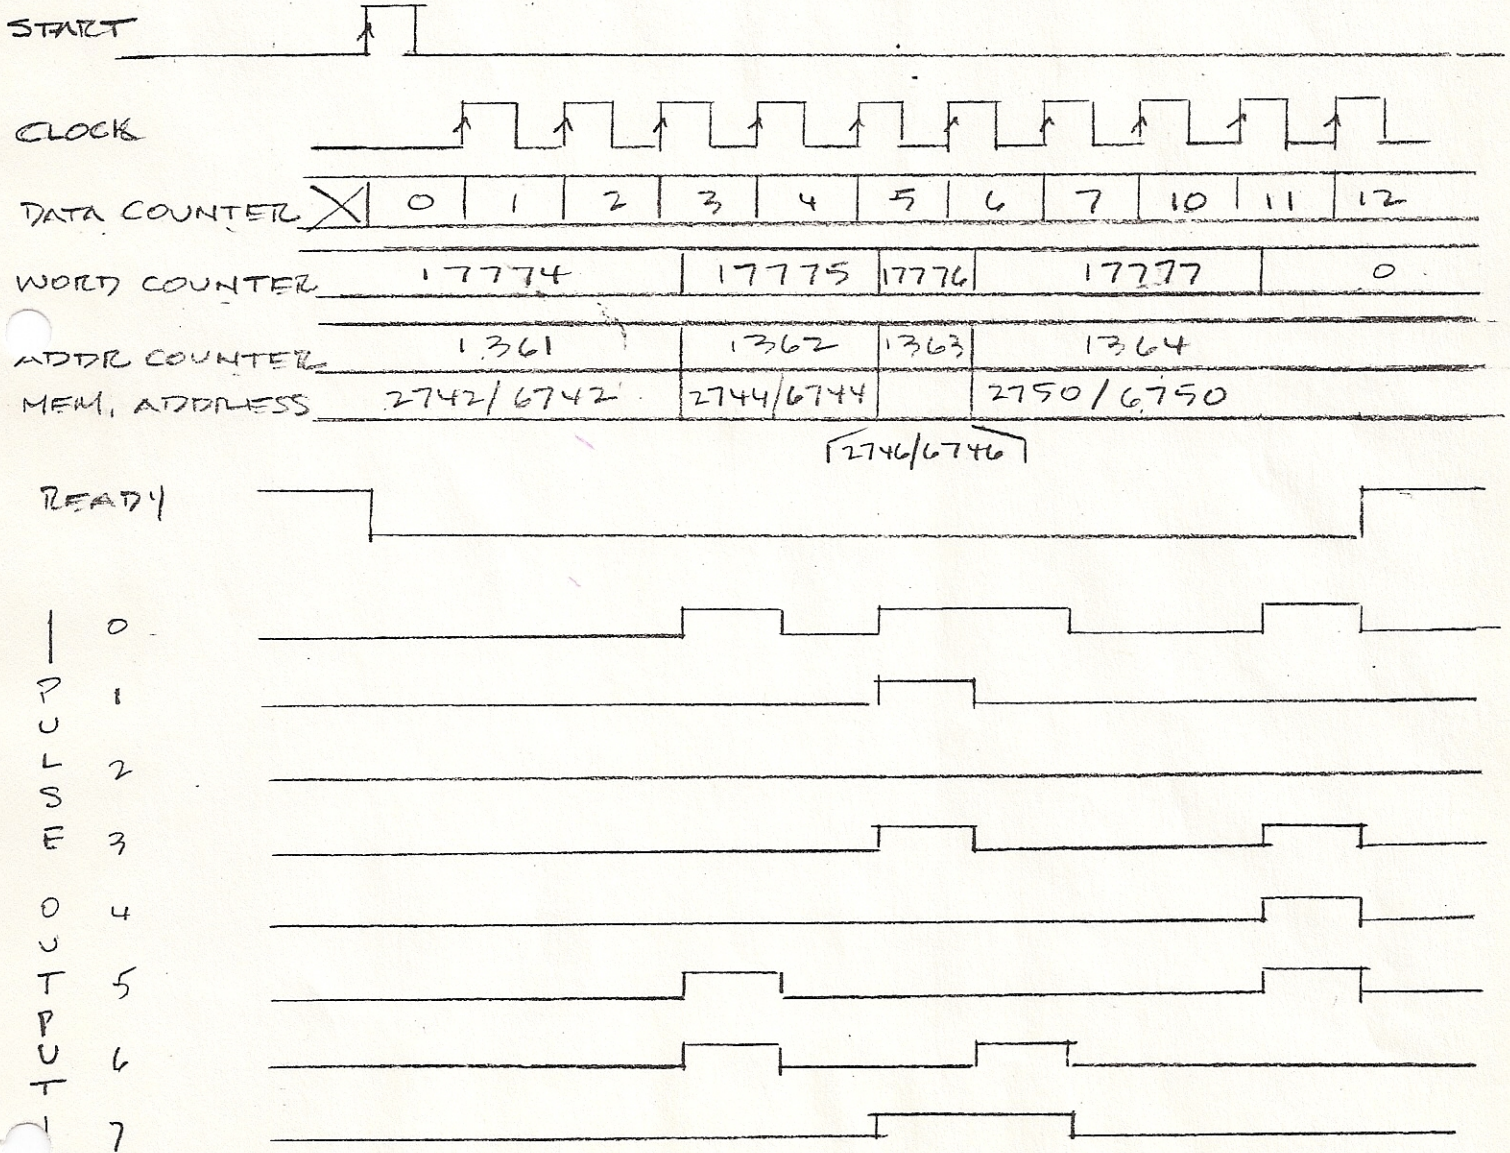 START
CLOCK
DATA COUNTER 0 1 2 3 4 5 6 7 10 11 12
WORD COUNTER 17774 17775 17776 17777 0
ADDR COUNTER 1361 1362 1363 1364
MEM, ADDRESS 2742/6742 2744/6744 2750/6750
2746/6746
READY
PULSE OUTPUT
0
1
2
3
4
5
6
7